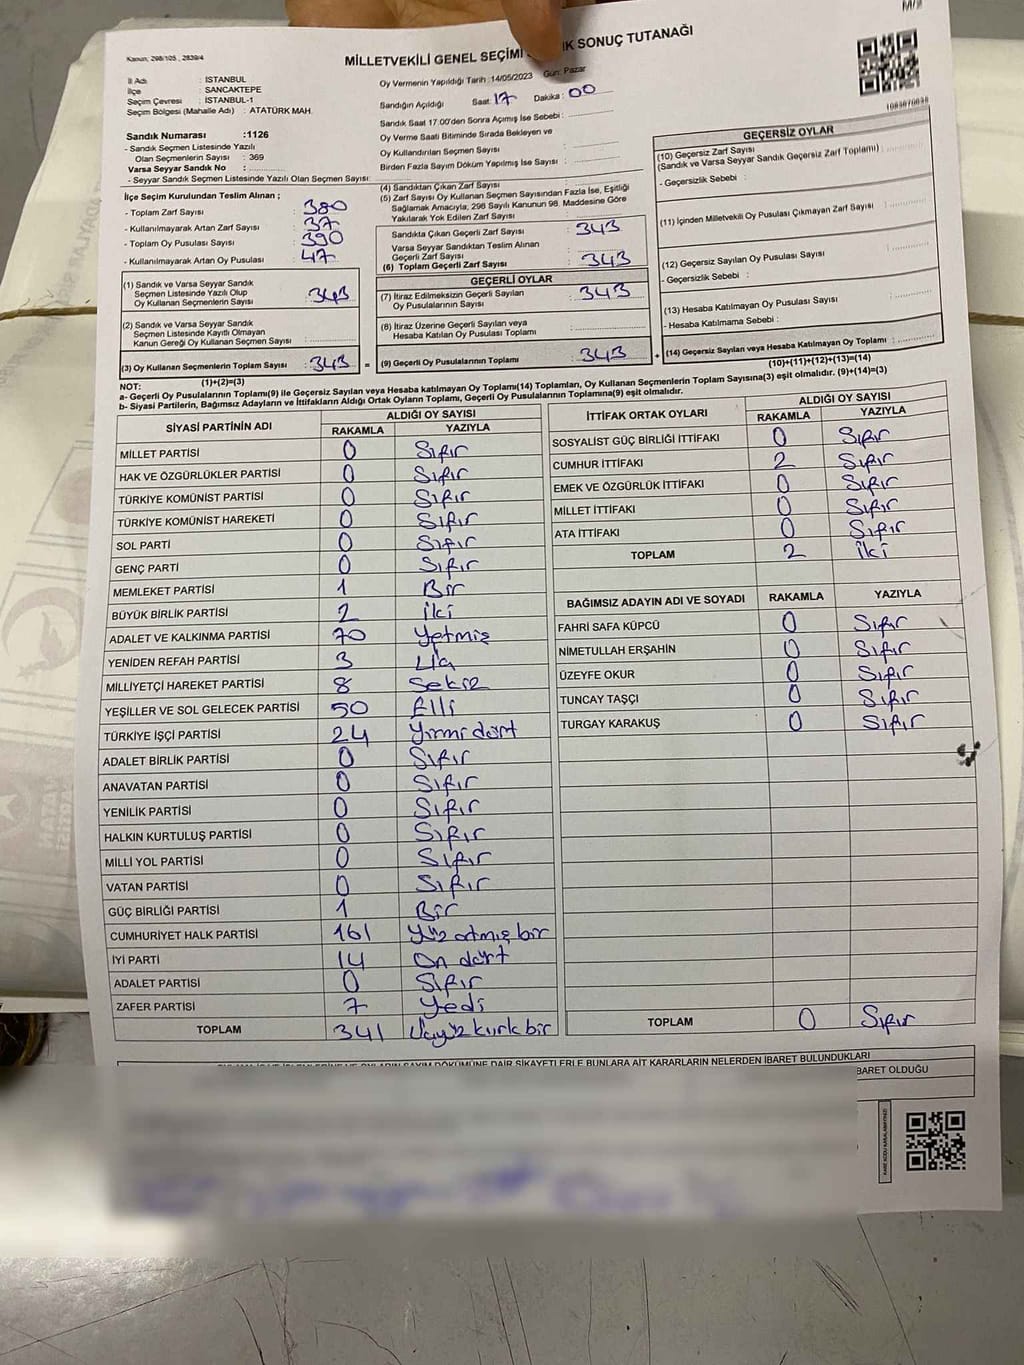 M/2
Kanun: 298/105 , 2839/4
MİLLETVEKİLİ GENEL SEÇİMİ SONUÇ TUTANAĞI
1083070838
İl Adı : İSTANBUL
İlçe : SANCAKTEPE
Seçim Çevresi : İSTANBUL-1
Seçim Bölgesi (Mahalle Adı) : ATATÜRK MAH.
Sandık Numarası :1126
- Sandık Seçmen Listesinde Yazılı
Olan Seçmenlerin Sayısı : 369
Varsa Seyyar Sandık No :
- Seyyar Sandık Seçmen Listesinde Yazılı Olan Seçmen Sayısı:
Oy Vermenin Yapıldığı Tarih :14/05/2023 Gün: Pazar
Sandığın Açıldığı Saat: 17 Dakika : 00
Sandık Saat 17.00'den Sonra Açımış İse Sebebi :
Oy Verme Saati Bitiminde Sırada Bekleyen ve
Oy Kullandırılan Seçmen Sayısı :
Birden Fazla Sayım Döküm Yapılmış İse Sayısı :
İlçe Seçim Kurulundan Teslim Alınan ;
- Toplam Zarf Sayısı : 380
- Kullanılmayarak Artan Zarf Sayısı : 37
- Toplam Oy Pusulası Sayısı : 390
- Kullanılmayarak Artan Oy Pusulası : 47
(1) Sandık ve Varsa Seyyar Sandık
Seçmen Listesinde Yazılı Olup
Oy Kullanan Seçmenlerin Sayısı : 343
(2) Sandık ve Varsa Seyyar Sandık
Seçmen Listesinde Kayıtlı Olmayan
Kanun Gereği Oy Kullanan Seçmen Sayısı :
(3) Oy Kullanan Seçmenlerin Toplam Sayısı : 343 =
(1)+(2)=(3)
(4) Sandıktan Çıkan Zarf Sayısı :
(5) Zarf Sayısı Oy Kullanan Seçmen Sayısından Fazla İse, Eşitliği
Sağlamak Amacıyla, 298 Sayılı Kanunun 98. Maddesine Göre
Yakılarak Yok Edilen Zarf Sayısı :
Sandıkta Çıkan Geçerli Zarf Sayısı : 343
Varsa Seyyar Sandıktan Teslim Alınan
Geçerli Zarf Sayısı :
(6) Toplam Geçerli Zarf Sayısı : 343
GEÇERLİ OYLAR
(7) İtiraz Edilmeksizin Geçerli Sayılan
Oy Pusulalarının Sayısı : 343
(8) İtiraz Üzerine Geçerli Sayılan veya
Hesaba Katılan Oy Pusulası Toplamı :
(9) Geçerli Oy Pusulalarının Toplamı : 343 +
GEÇERSİZ OYLAR
(10) Geçersiz Zarf Sayısı
(Sandık ve Varsa Seyyar Sandık Geçersiz Zarf Toplamı) :
- Geçersizlik Sebebi :
(11) İçinden Milletvekili Oy Pusulası Çıkmayan Zarf Sayısı :
(12) Geçersiz Sayılan Oy Pusulası Sayısı :
- Geçersizlik Sebebi :
(13) Hesaba Katılmayan Oy Pusulası Sayısı :
- Hesaba Katılmama Sebebi :
(14) Geçersiz Sayılan veya Hesaba Katılmayan Oy Toplamı :
(10)+(11)+(12)+(13)=(14)
NOT:
a- Geçerli Oy Pusulalarının Toplamı(9) ile Geçersiz Sayılan veya Hesaba katılmayan Oy Toplamı(14) Toplamları, Oy Kullanan Seçmenlerin Toplam Sayısına(3) eşit olmalıdır. (9)+(14)=(3)
b- Siyasi Partilerin, Bağımsız Adayların ve İttifakların Aldığı Ortak Oyların Toplamı, Geçerli Oy Pusulalarının Toplamına(9) eşit olmalıdır.
SİYASİ PARTİNİN ADI ALDIĞI OY SAYISI
RAKAMLA YAZIYLA
MİLLET PARTİSİ 0 Sıfır
HAK VE ÖZGÜRLÜKLER PARTİSİ 0 Sıfır
TÜRKİYE KOMÜNİST PARTİSİ 0 Sıfır
TÜRKİYE KOMÜNİST HAREKETİ 0 Sıfır
SOL PARTİ 0 Sıfır
GENÇ PARTİ 0 Sıfır
MEMLEKET PARTİSİ 1 Bir
BÜYÜK BİRLİK PARTİSİ 2 İki
ADALET VE KALKINMA PARTİSİ 70 Yetmiş
YENİDEN REFAH PARTİSİ 3 Üç
MİLLİYETÇİ HAREKET PARTİSİ 8 Sekiz
YEŞİLLER VE SOL GELECEK PARTİSİ 50 Elli
TÜRKİYE İŞÇİ PARTİSİ 24 Yirmi dört
ADALET BİRLİK PARTİSİ 0 Sıfır
ANAVATAN PARTİSİ 0 Sıfır
YENİLİK PARTİSİ 0 Sıfır
HALKIN KURTULUŞ PARTİSİ 0 Sıfır
MİLLİ YOL PARTİSİ 0 Sıfır
VATAN PARTİSİ 0 Sıfır
GÜÇ BİRLİĞİ PARTİSİ 1 Bir
CUMHURİYET HALK PARTİSİ 161 Yüz atmış bir
İYİ PARTİ 14 On dört
ADALET PARTİSİ 0 Sıfır
ZAFER PARTİSİ 7 Yedi
TOPLAM 341 Üçyüz kırk bir
İTTİFAK ORTAK OYLARI ALDIĞI OY SAYISI
RAKAMLA YAZIYLA
SOSYALİST GÜÇ BİRLİĞİ İTTİFAKI 0 Sıfır
CUMHUR İTTİFAKI 2 Sıfır
EMEK VE ÖZGÜRLÜK İTTİFAKI 0 Sıfır
MİLLET İTTİFAKI 0 Sıfır
ATA İTTİFAKI 0 Sıfır
TOPLAM 2 İki
BAĞIMSIZ ADAYIN ADI VE SOYADI RAKAMLA YAZIYLA
FAHRİ SAFA KÜPCÜ 0 Sıfır
NİMETULLAH ERŞAHİN 0 Sıfır
ÜZEYFE OKUR 0 Sıfır
TUNCAY TAŞÇI 0 Sıfır
TURGAY KARAKUŞ 0 Sıfır
TOPLAM 0 Sıfır
SAYIM DÖKÜMÜNE DAİR ŞİKAYETLERLE BUNLARA AİT KARARLARIN NELERDEN İBARET BULUNDUKLARI
BARET OLDUĞU